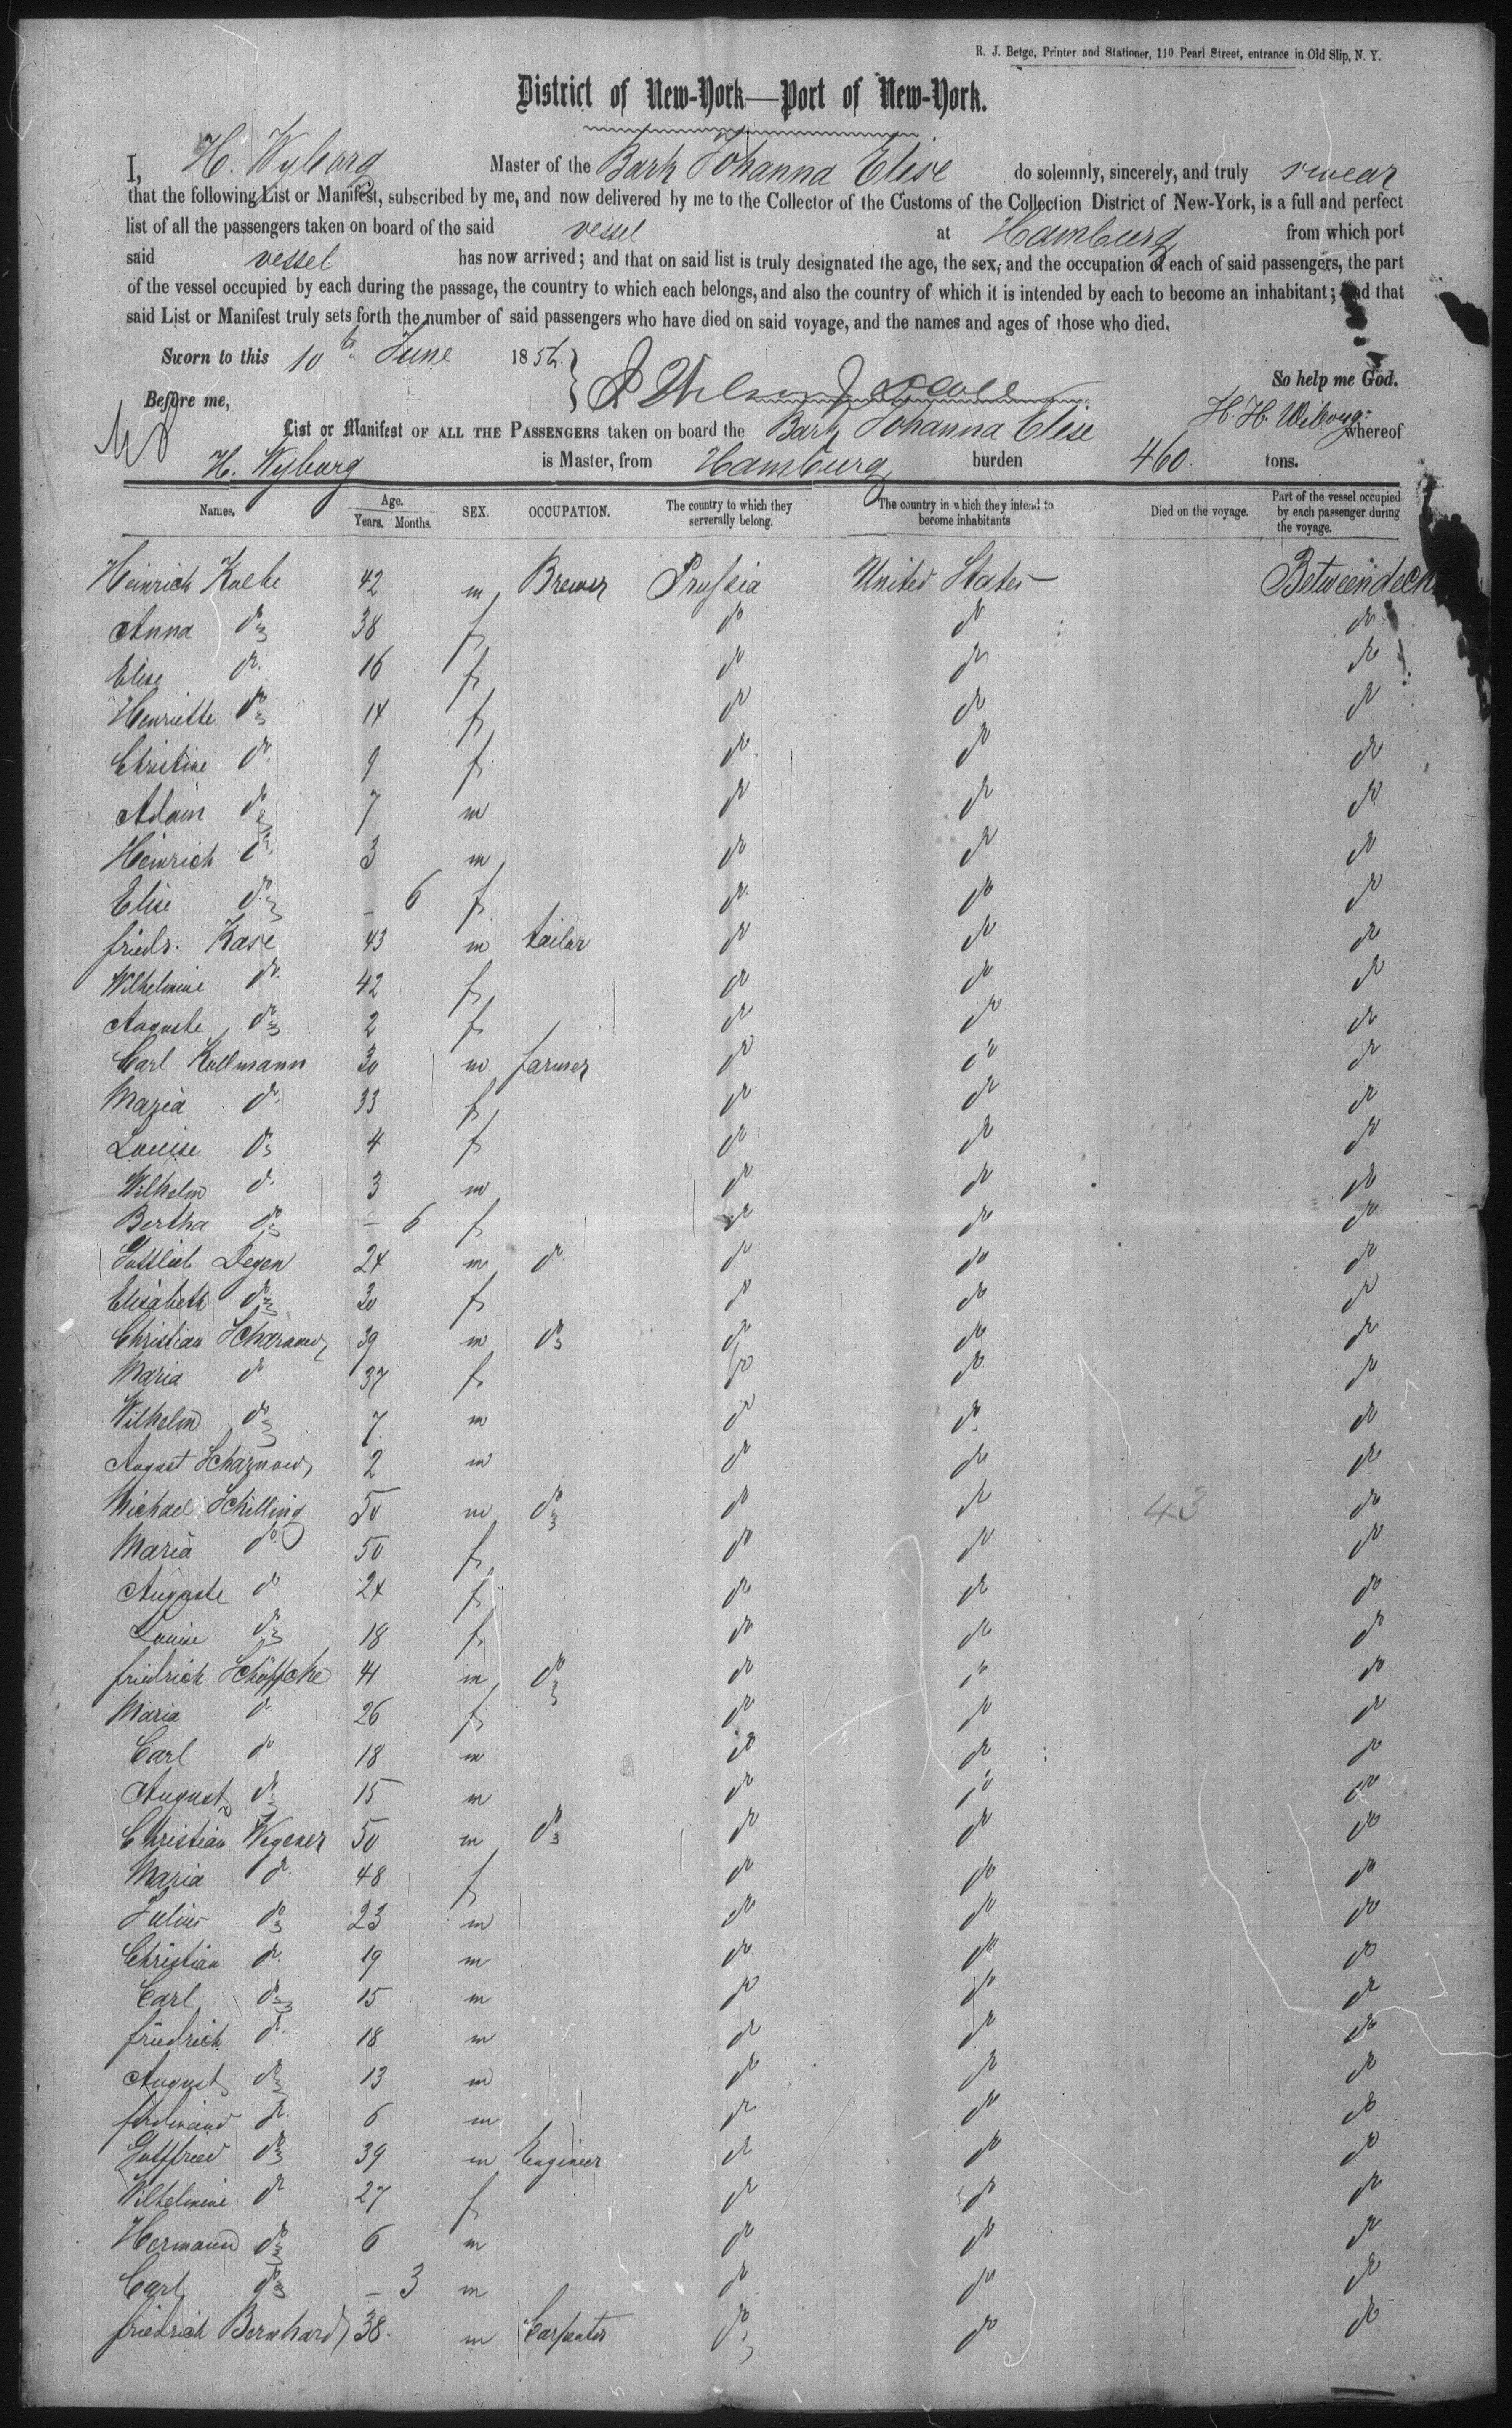 R. J. Betge, Printer and Stationer, 110 Pearl Street, entrance in Old Slip, N. Y.
District of New-York—Port of New-York.
I, H. Wyborg Master of the Bark Johanna Elise do solemnly, sincerely, and truly swear
that the following List or Manifest, subscribed by me, and now delivered by me to the Collector of the Customs of the Collection District of New-York, is a full and perfect
list of all the passengers taken on board of the said vessel at Hamburg from which port
said vessel has now arrived; and that on said list is truly designated the age, the sex, and the occupation of each of said passengers, the part
of the vessel occupied by each during the passage, the country to which each belongs, and also the country of which it is intended by each to become an inhabitant; and that
said List or Manifest truly sets forth the number of said passengers who have died on said voyage, and the names and ages of those who died.
Sworn to this 10th June 1856
So help me God.
Before me,
List or Manifest OF ALL THE PASSENGERS taken on board the Bark Johanna Elise whereof
H. Wyborg is Master, from Hamburg burden 460 tons.
Names. Age. Years. Months. SEX. OCCUPATION. The country to which they serverally belong. The country in which they intend to become inhabitants Died on the voyage. Part of the vessel occupied by each passenger during the voyage.
Heinrich 42 m Brewer Prussia United States — Betweendeck
Anna do 38 f do do do
Elise do 16 f do do do
Henriette do 14 f do do do
Christine do 9 f do do do
Adam do 7 m do do do
Heinrich do 3 m do do do
Elise do – 6 f do do do
friedr. Kase 43 m tailor do do do
Wilhelmine do 42 f do do do
Auguste do 2 f do do do
Carl Kollmann 30 m farmer do do do
Maria do 33 f do do do
Louise do 4 f do do do
Wilhelm do 3 m do do do
Bertha do – 6 f do do do
Gottlieb Degen 24 m do do do do
Elisabeth do 30 f do do do
Christian Scharnow 39 m do do do do
Maria do 37 f do do do
Wilhelm do 7 m do do do
August Scharnow 2 m do do do
Michael Schilling 50 m do do do 43 do
Maria do 50 f do do do
Auguste do 24 f do do do
Louise do 18 f do do do
friedrich 41 m do do do do
Maria do 26 f do do do
Carl do 18 m do do do
August do 15 m do do do
Christian Wegener 50 m do do do do
Maria do 48 f do do do
Julius do 23 m do do do
Christian do 19 m do do do
Carl do 15 m do do do
friedrich do 18 m do do do
August do 13 m do do do
ferdinand do 6 m do do do
Gottfried do 39 m Engineer do do do
Wilhelmine do 27 f do do do
Hermann do 6 m do do do
Carl do – 3 m do do do
friedrich Bernhard 38 m Carpenter do do do